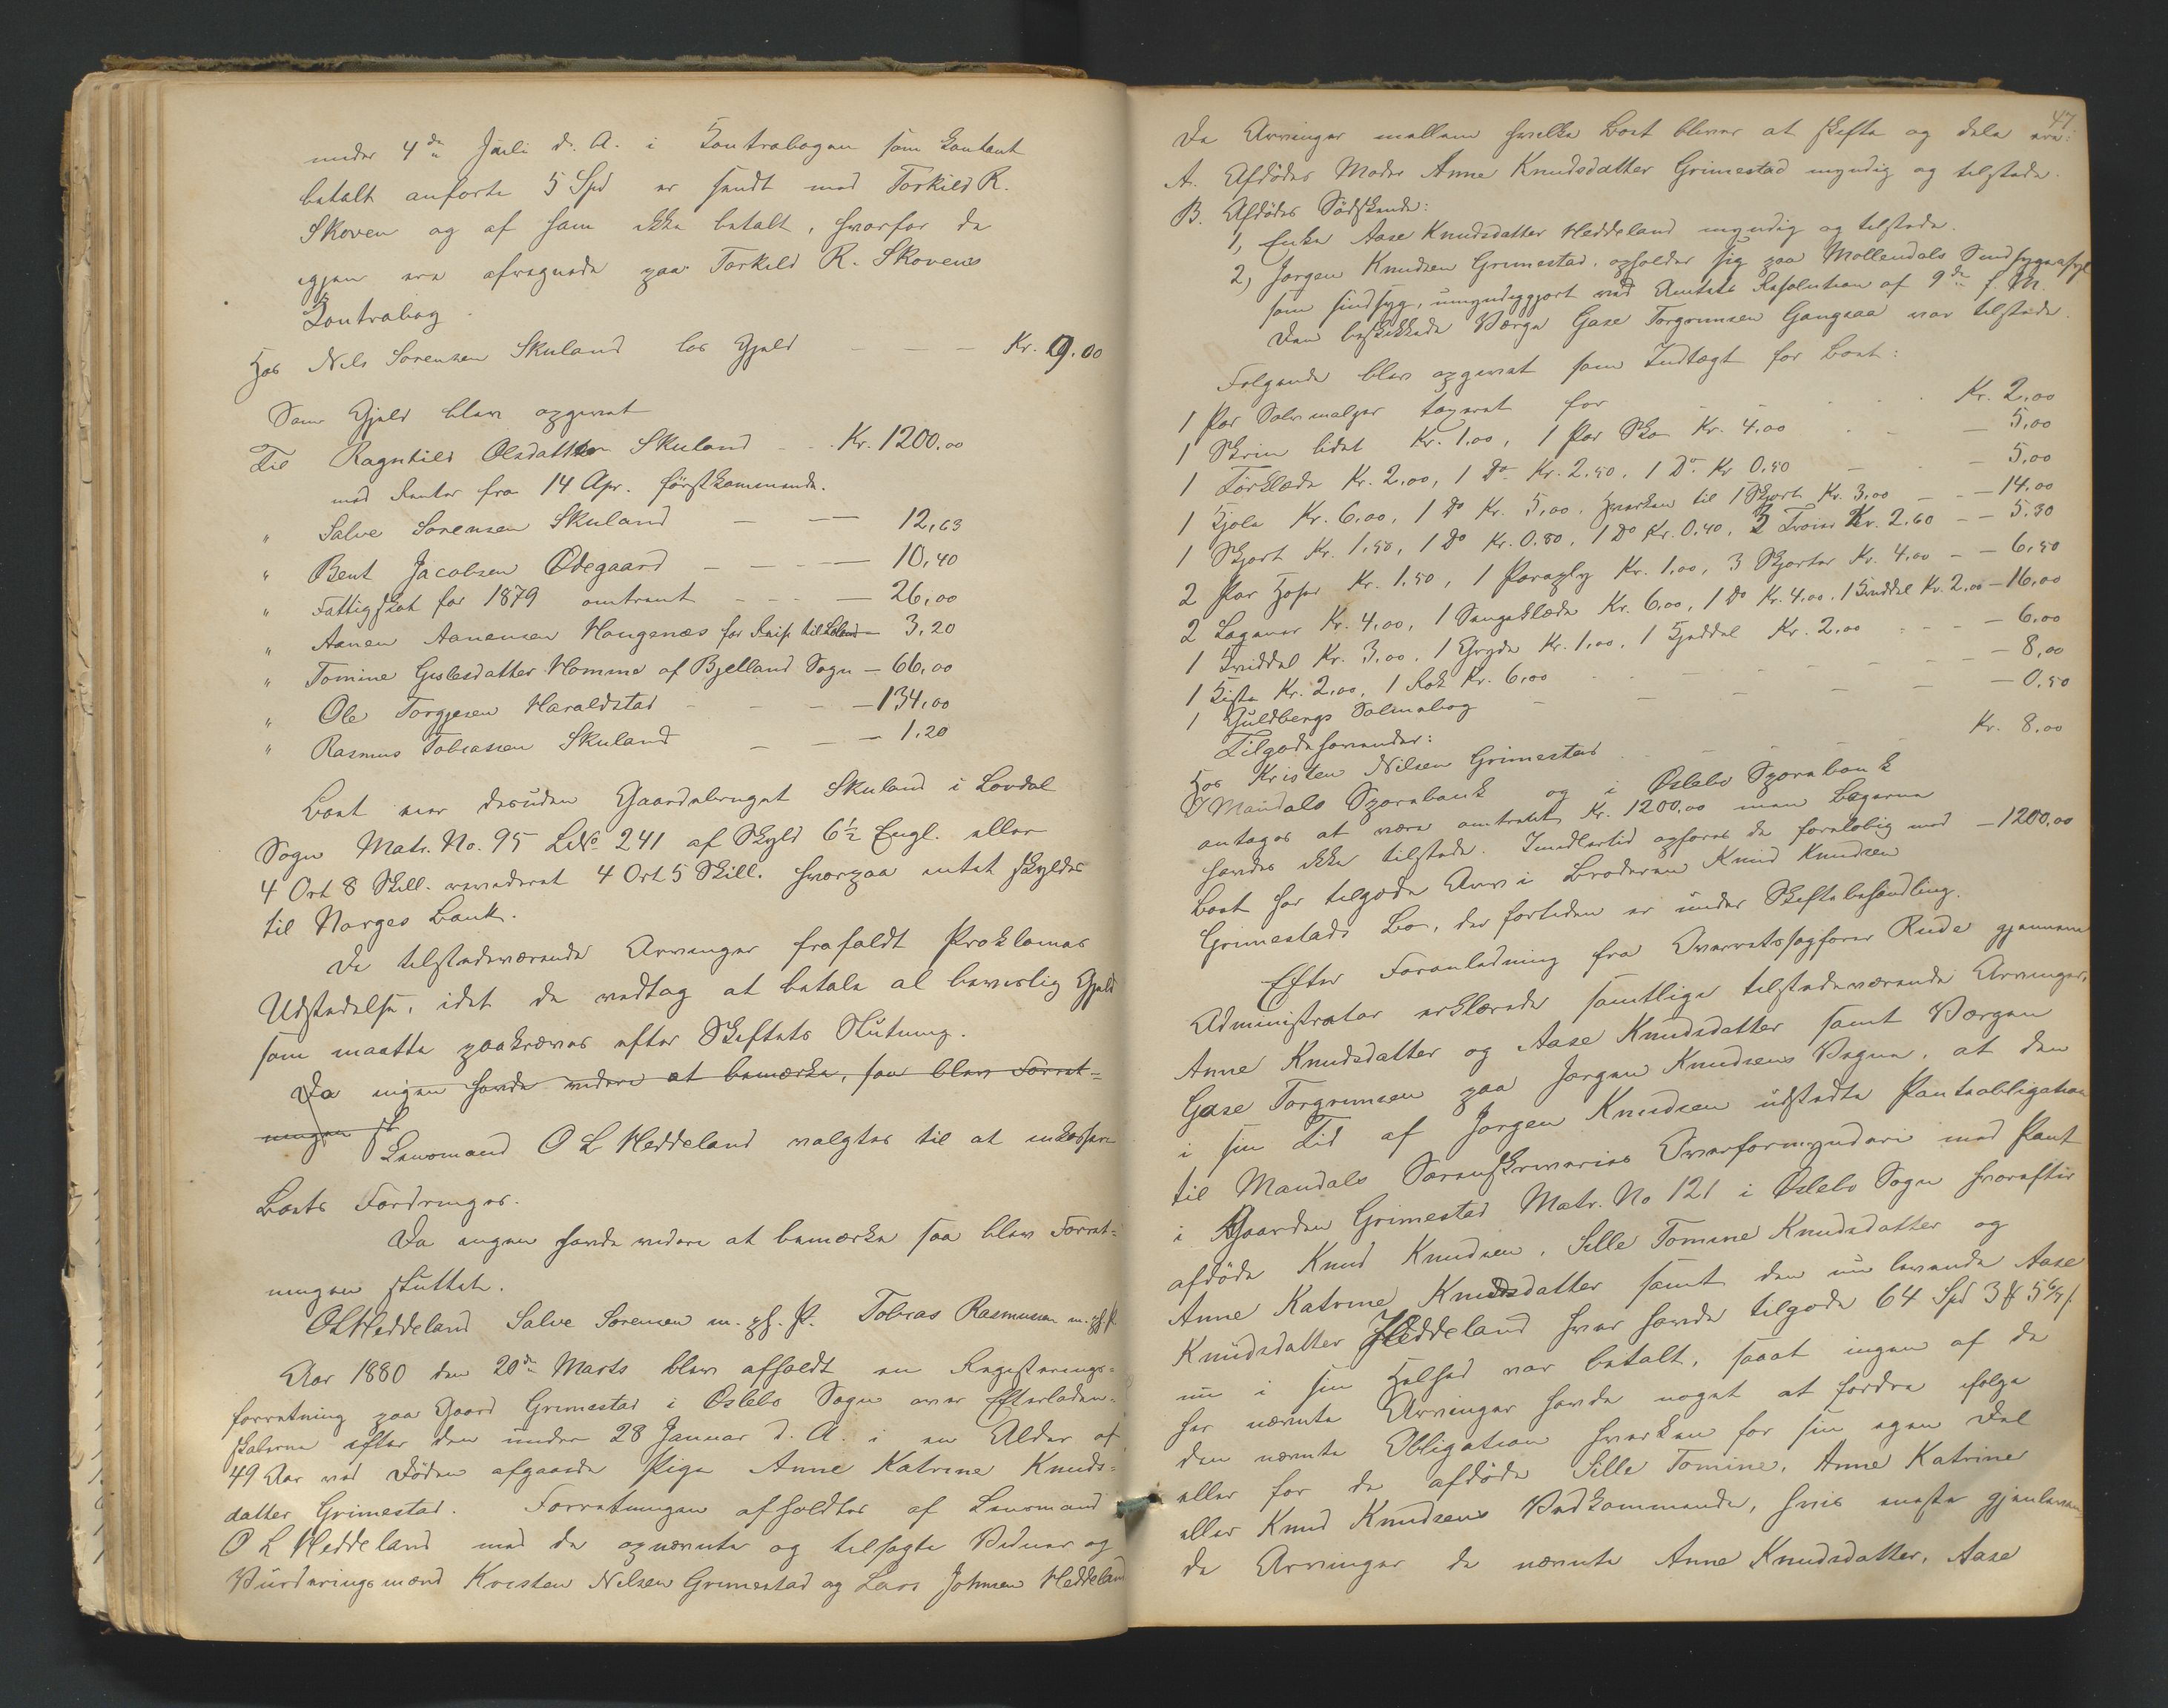 under 4de Juli d. A. i Kontrabogen som kontant
betalt anførte 5 Spd er sendt med Torkild R.
Skoven og af ham ikke betalt, hvorfor de
igjen ere afregnede paa Torkild R. Skovens
Kontrabog.
Hos Nils Sørensen Skuland los Gjæld — — — Kr. 9.00
Som Gjæld blev opgivet
Til Ragnhild Olsdatter Skuland - - Kr. 1200.00
med Renter fra 14 Apr. førstkommende.
" Salve Sørensen Skuland — — 12,63
" Bent Jacobsen Ødegaard — — — 10,40
" Fattigskat for 1879 omtrent - - - — 26,00
" Aanen Aanensen Haugenæs for Reise til — 3,20
" Tomine Gislesdatter Homme af Bjelland Sogn — 66,00
" Ole Torgjesen Haraldstad - - - — 134,00
" Rasmus Tobiassen Skuland — — — 1,20
Boet eier desuden Gaardsbruget Skuland i Løvdal
Sogn Matr. No. 95 LNo 241 af Skyld 6½ Engl. eller
4 Ort 8 Skill. revideret 4 Ort 5 Skill. hvorpaa intet skyldes
til Norges Bank.
De tilstedeværende Arvinger frafaldt Proklamas
Udstedelse, idet de vedtog at betale al bevislig Gjæld
som maatte paakræves efter Skiftets Slutning.
Da ingen havde videre at bemærke, saa blev Forret=
ningen sl
Lensmand O L Heddeland valgtes til at inkassere
Boets Fordringer.
Da ingen havde videre at bemærke saa blev Forret=
ningen sluttet.
OLHeddeland Salve Sørensen m. p. P. Tobias Rasmussen m. p. P.
Aar 1880 den 20de Marts blev afholdt en Registrerings=
forretning paa Gaard Grimestad i Øslebø Sogn over Efterladen=
skaberne efter den under 28 Januar d. A. i en Alder af
49 Aar ved Døden afgaaede Pige Anne Katrine Knuds=
datter Grimestad. Forretningen afholdtes af Lensmand
O L Heddeland med de opnævnte og tilsagte Vidner og
Vurderingsmænd Kristen Nilsen Grimestad og Lars Johnsen Heddeland
47
De Arvinger mellem hvilke Boet bliver at skifte og dele ere:
A. Afdødes Moder Anne Knudsdatter Grimestad myndig og tilstede.
B. Afdødes Sødskende:
1, Enke Aase Knudsdatter Heddeland myndig og tilstede.
2, Jørgen Knudsen Grimestad, opholder sig paa Møllendals Sindsygeasyl
som sindsyg, umyndiggjort ved Amtets Resolution af 9de f. M.
Den beskikkede Værge Gase Torgrimsen Gangsaa var tilstede.
Følgende blev opgivet som Indtægt for Boet:
1 Par Sølvmalger taxeret for - - - - Kr. 2,00
1 Skrin lidet Kr. 1,00, 1 Par Sko Kr. 4,00 - - — 5,00
1 Törklæde Kr. 2,00, 1 Do Kr. 2,50, 1 Do Kr 0,50 — - — 5,00
1 Kjole Kr. 6,00, 1 Do Kr. 5,00. Hverken til 1 Skjort Kr. 3,00 — - — 14,00
1 Skjort Kr. 1,50, 1 Do Kr. 0.80, 1 Do Kr. 0.40, 3 Trøier Kr. 2.60 - — 5.30
2 Par Hoser Kr. 1.50, 1 Paraply Kr. 1,00, 3 Skjorter Kr. 4,00 - — 6,50
2 Laganer Kr. 4,00, 1 Sengeklæde Kr. 6,00, 1 Do Kr. 4.00. 1 Kviddel Kr. 2,00 — 16,00
1 Kviddel Kr. 3,00. 1 Gryde Kr. 1,00, 1 Kjeddel Kr. 2,00 - - - — 6,00
1 Kiste Kr. 2,00, 1 Rok Kr. 6,00 - - - - — 8,00
1 Guldbergs Salmebog - — — — — — 0,50
Tilgodehavender:
Hos Kristen Nilsen Grimestad - - - - Kr. 8,00
I Mandals Sparebank og i Øslebø Sparebank
antages at være omtrent Kr. 1200.00 men Bøgerne
havdes ikke tilstede. Imidlertid opføres de foreløbig med — 1200,00
Boet har tilgode Arv i Broderen Knud Knudsen
Grimestads Bo, der fortiden er under Skiftebehandling.
Efter Foranledning fra Overretssagfører Rude gjennem
Administrator erklærede samtlige tilstedeværende Arvinger,
Anne Knudsdatter og Aase Knudsdatter samt Værgen
Gase Torgrimsen paa Jørgen Knudsens Vegne, at den
i sin Tid af Jørgen Knudsen udstedte Panteobligation
til Mandals Sorenskriveries Overformynderi med Pant
i Gaarden Grimestad Matr. No 121 i Øslebø Sogn hvorefter
afdøde Knud Knudsen, Sille Tomine Knudsdatter og
Anne Katrine Knudsdatter samt den nu levende Aase
Knudsdatter Heddeland hver havde tilgode 64 Spd 3 # 5 6/7 s
nu i sin Helhed var betalt, saaat ingen af de
her nævnte Arvinger havde noget at fordre ifølge
den nævnte Obligation hverken for sin egen Del
eller for de afdøde Sille Tomine, Anne Katrine
eller Knud Knudsens Vedkommende, hvis eneste gjenleven=
de Arvinger de nævnte Anne Knudsdatter, Aase